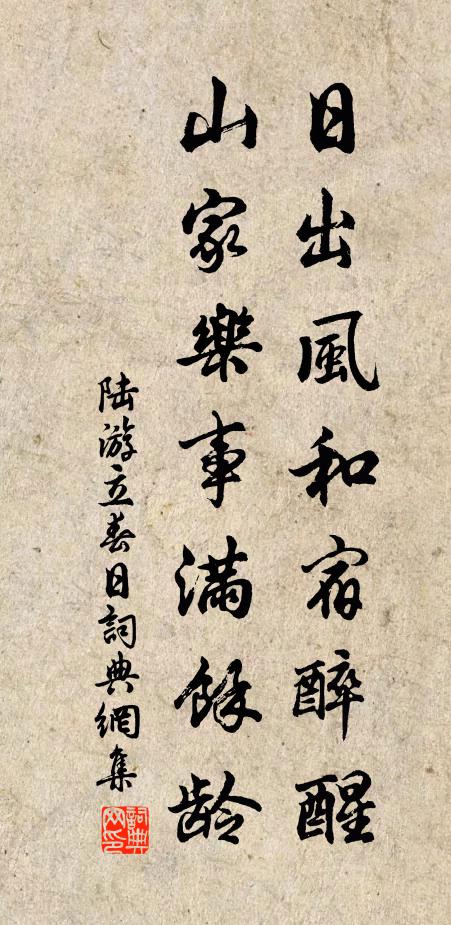 日出風和宿醉醒
山家樂事滿餘齡
陆游立春日詞典網集
詞典网印